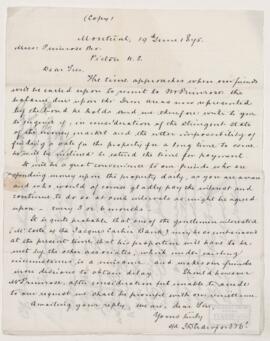 (Copy)
Montreal, 19th June 1875.
Messrs Primrose Bro.
Pictou N.S.
Dear Sirs,
The time approaches when our friends
will be called upon to remit to Mr Primrose the
balance due upon the Iron areas now represented
by the bond he holds and we therefore write you
to enquire if, in consideration of the stringent state
of the money market and the utter impossibility of
finding a sale for the property for a long time to come
he will be inclined to extend the time for payment
It will be a great convenience to our friends who are
spending money upon the property daily, as you are aware
and who would of course gladly pay the interest and
continue to do so at such intervals as might be agreed
upon - every 3 or 6 months -
It is quite probable that one of the gentlemen interested
(Mr Cotte of the Jacques Cartier Bank) may be embarrassed
at the present time & that his proportion will have to be
met by the other associates, which under existing
circumstances is a nuisance and makes our friends
more desirous to obtain delay. Should however
Mr Primrose, after consideration feel unable to accede
to our request we shall be prompt with our remittance.
Awaiting your reply, we are, dear Sirs,
Yours truly